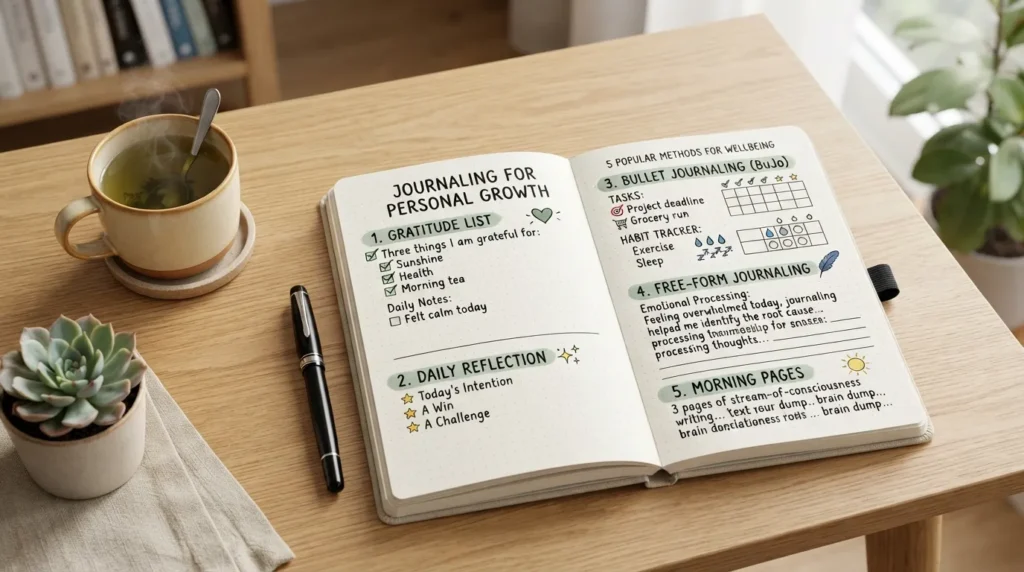 JOURNALING FOR
PERSONAL GROWTH
1. GRATITUDE LIST
Three things I am grateful for:
Sunshine
Health
Morning tea
Daily Notes:
Felt calm today
2. DAILY REFLECTION
Today's Intention
A Win
A Challenge
5 POPULAR METHODS FOR WELLBEING
3. BULLET JOURNALING (BuJo)
TASKS:
Project deadline
Grocery run
HABIT TRACKER:
Exercise
Sleep
4. FREE-FORM JOURNALING
Emotional Processing:
Feeling overwhelmed today, journaling
helped me identify the root cause...
processing for
processing thoughts...
5. MORNING PAGES
3 pages of stream-of-consciousness
writing... text your dump... brain dump...
brain brain dump...